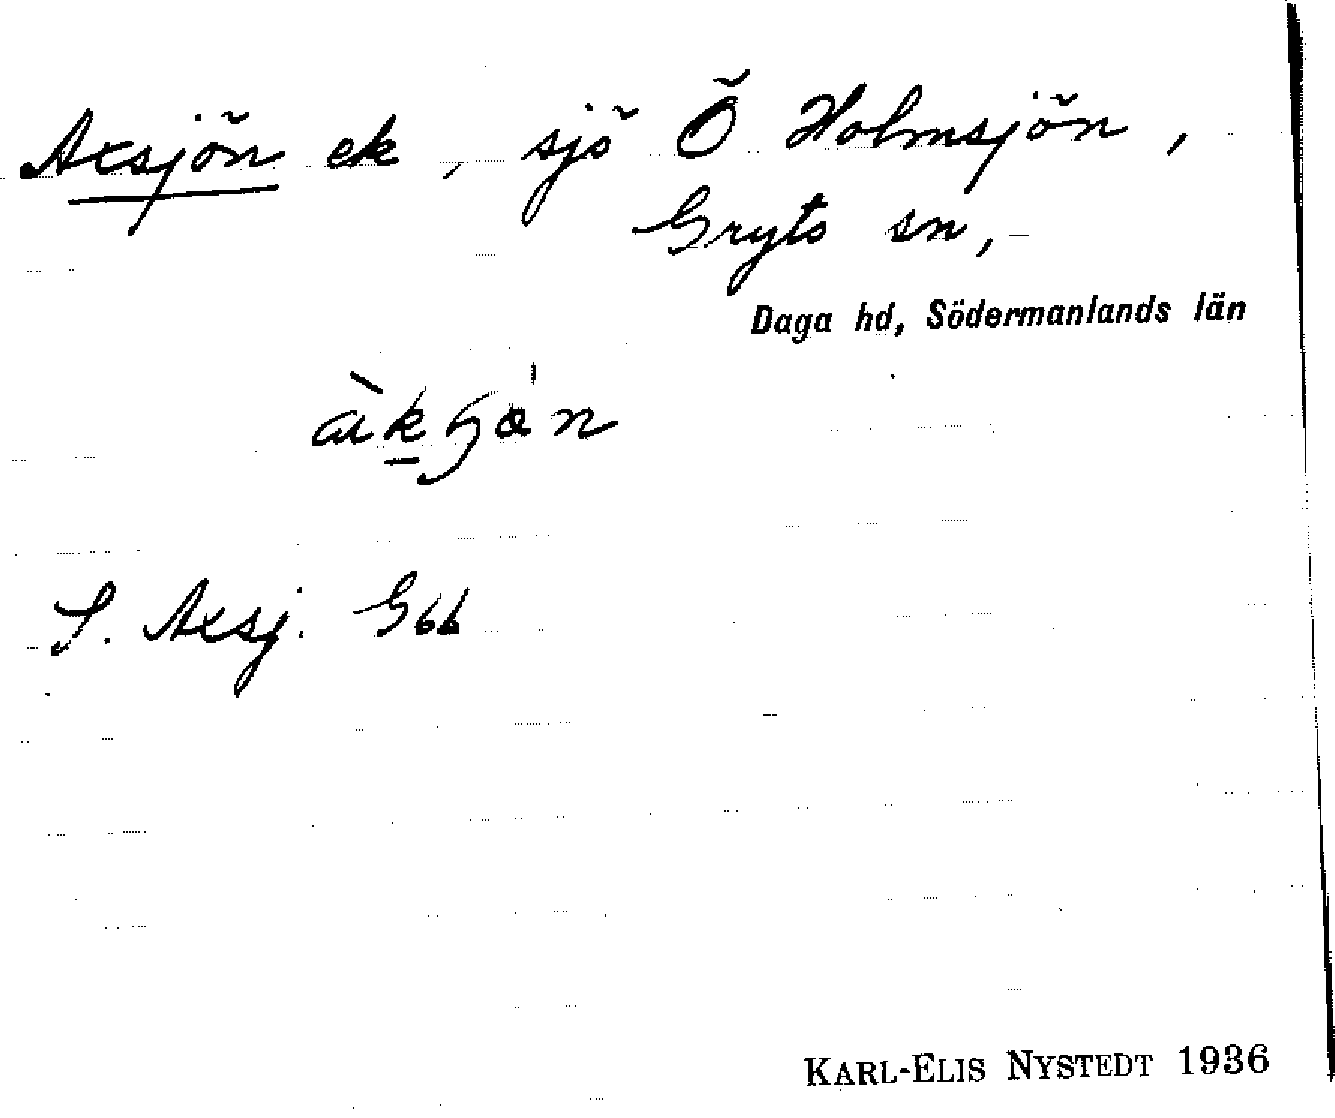 Axsjön ek, sjö Ö Holmsjön,
Gryts sn,
Daga hd, Södermanlands län
S. Axsj. Gbb
KARL-ELIS NYSTEDT 1936